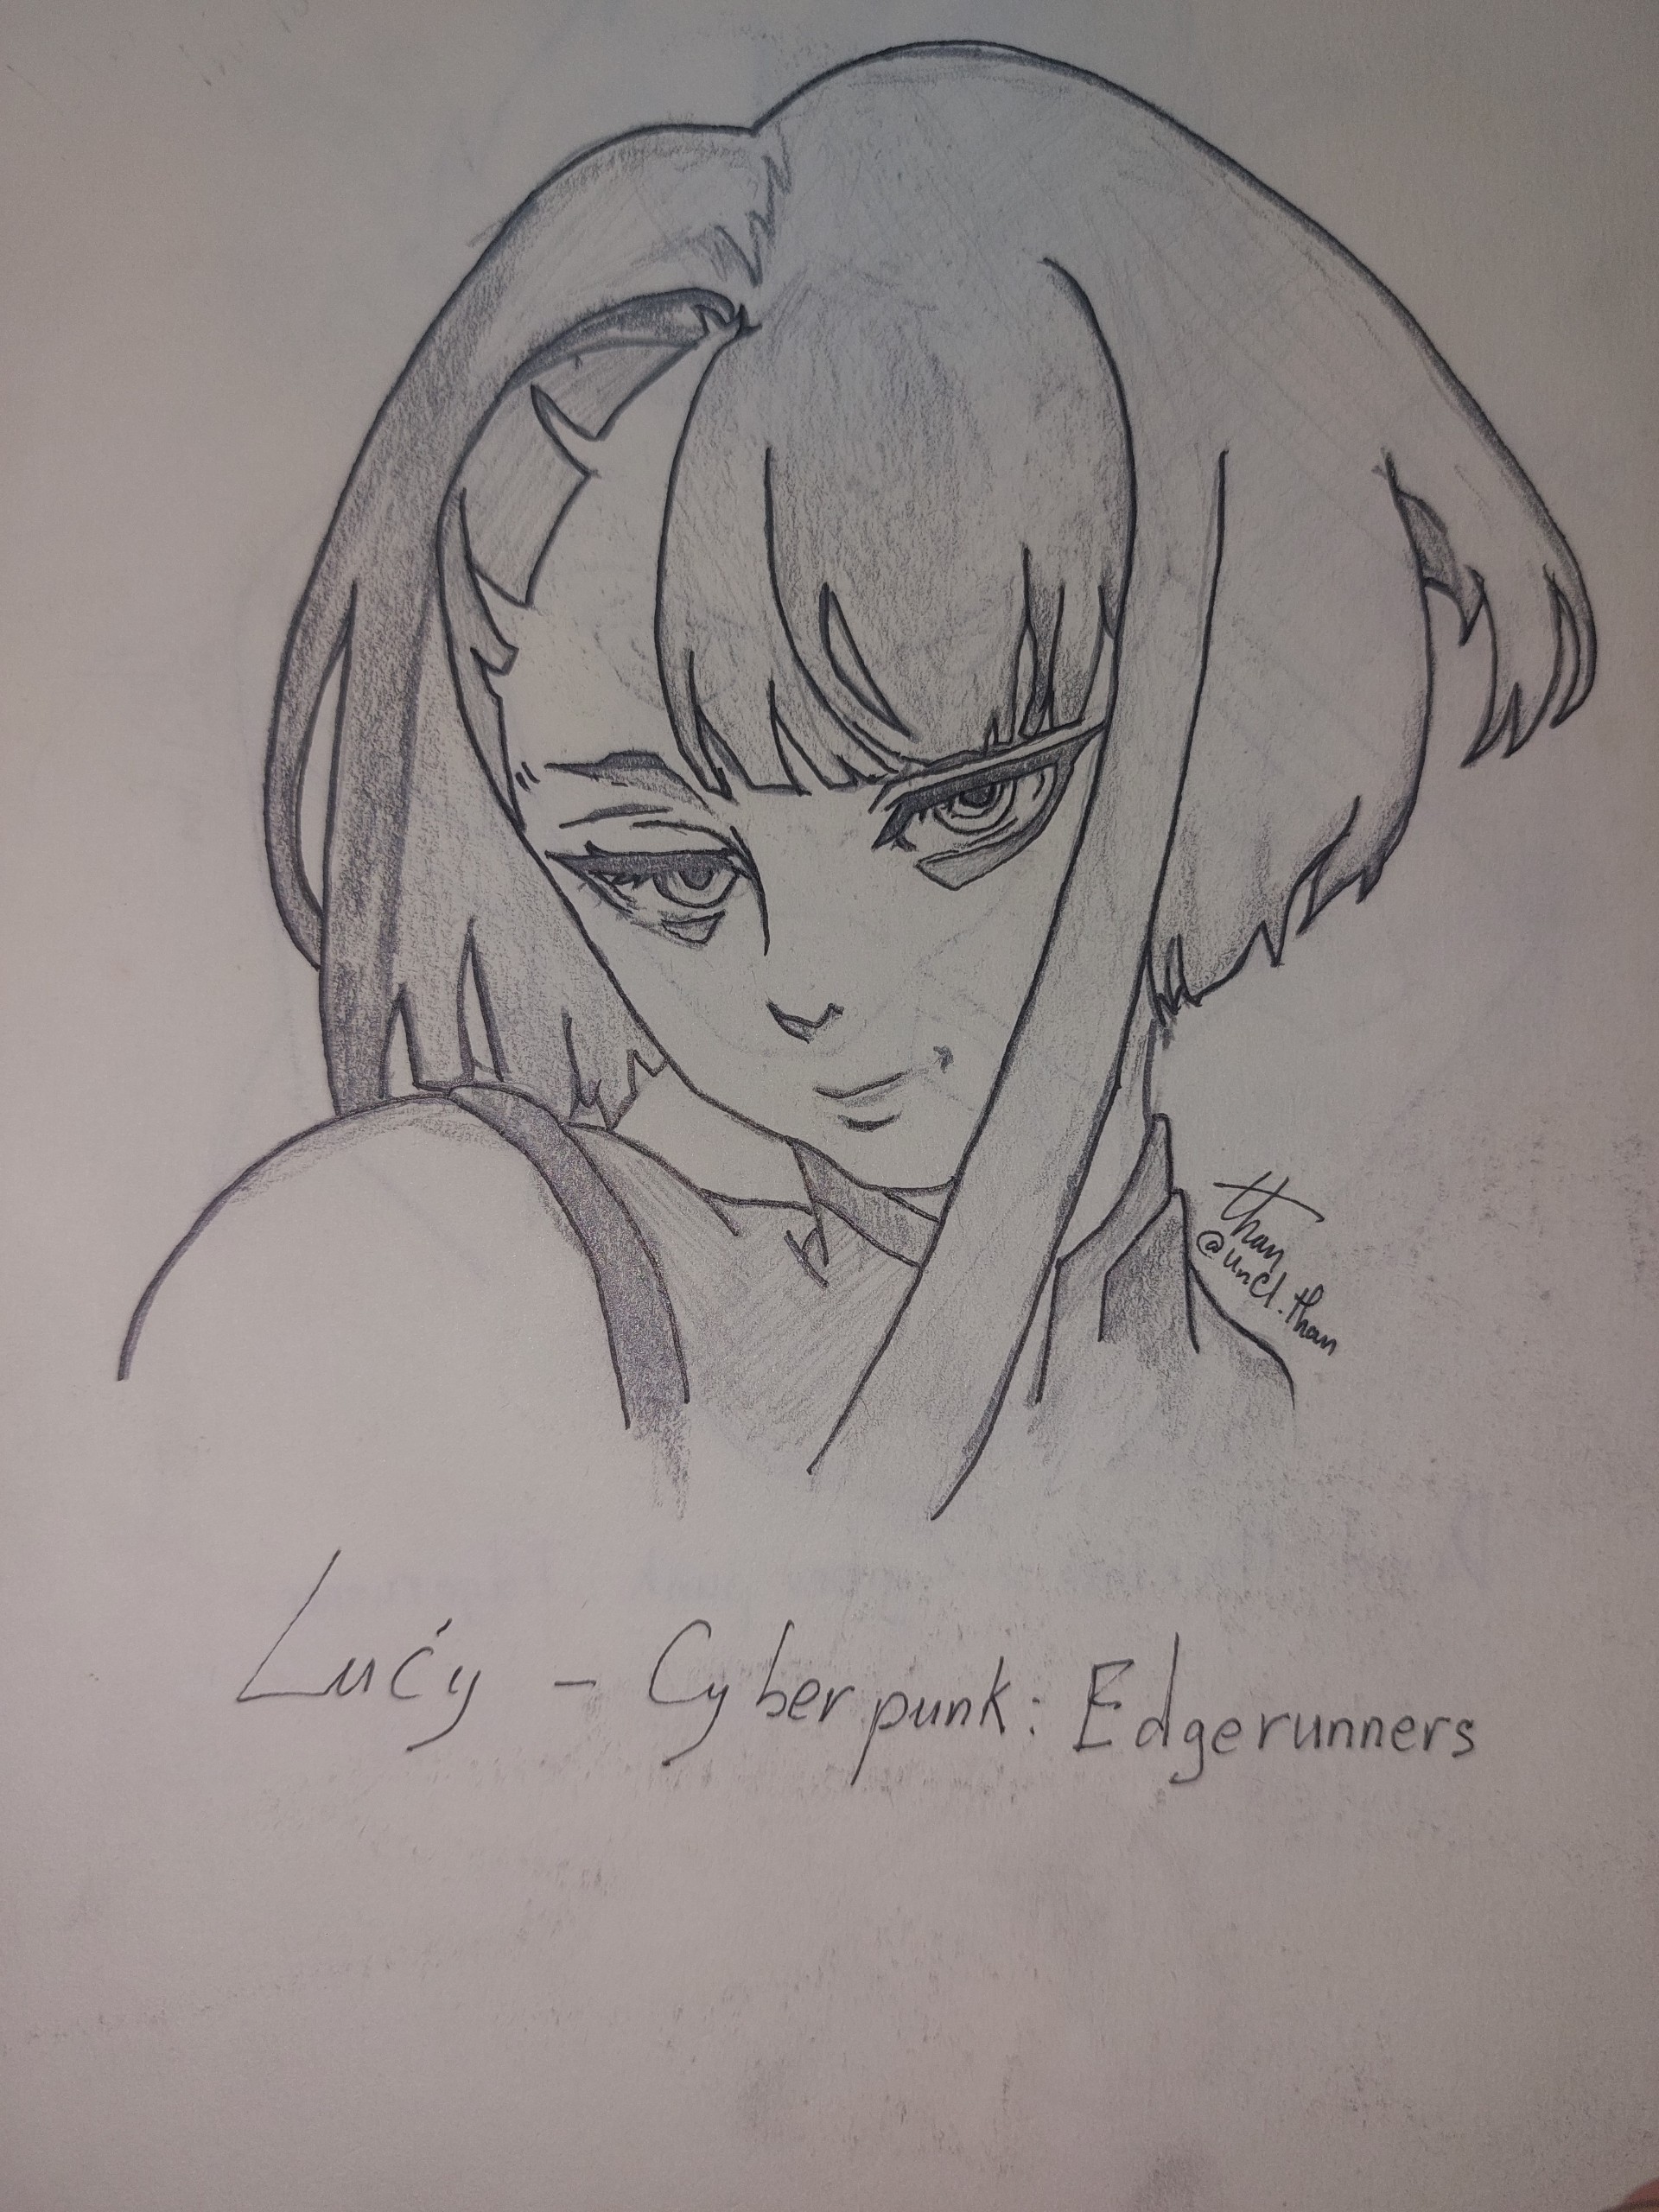 than
@uncl.than
Lucy - Cyberpunk: Edgerunners